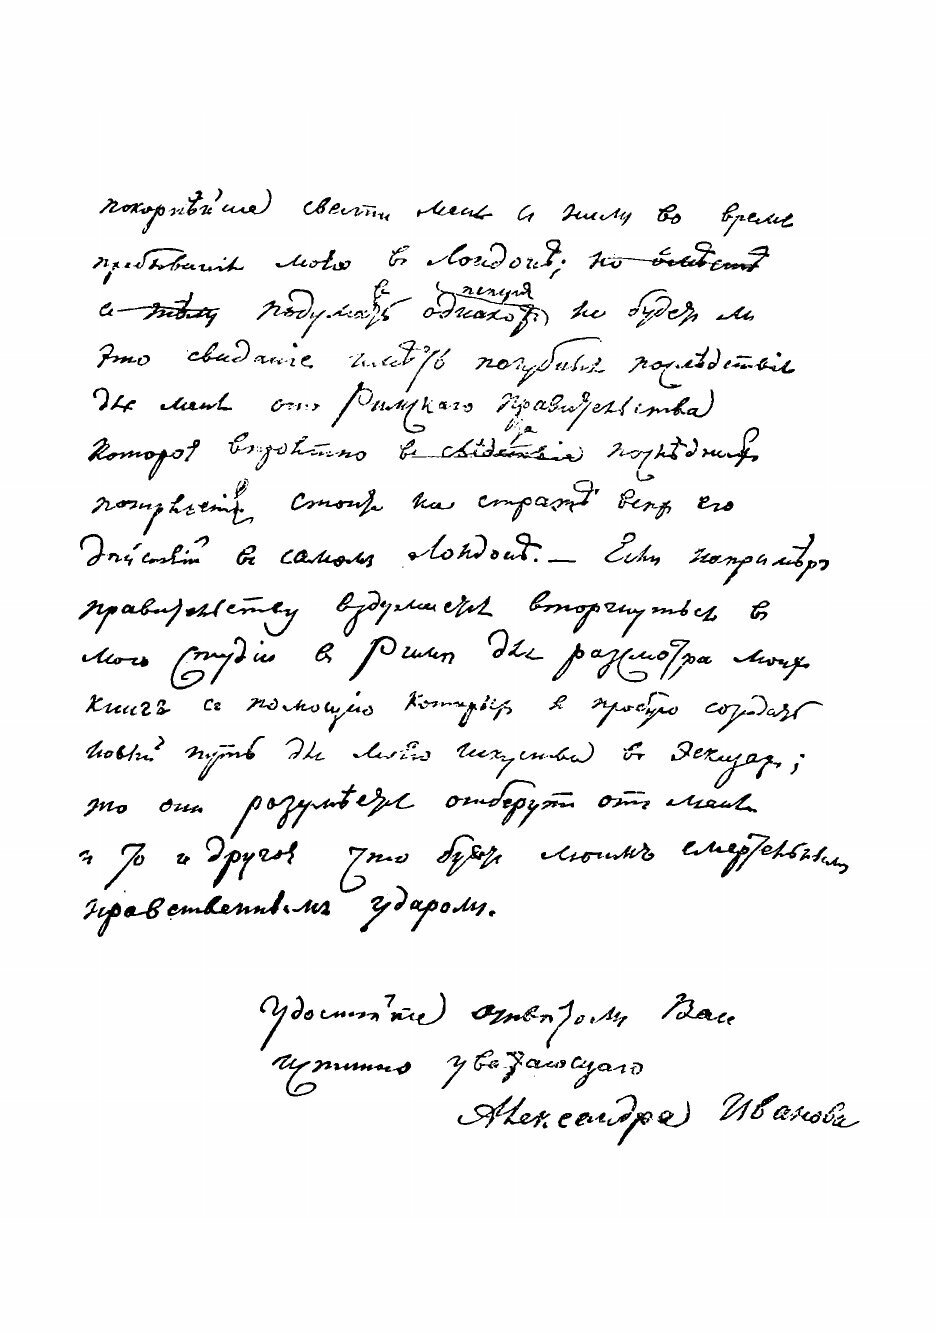 покорнѣйше свести меня съ ними во время
пребыванія моего въ Лондонѣ; но вмѣстѣ
съ тѣмъ подумать однако не будетъ ли
это свиданіе имѣть пагубныя послѣдствія
для меня отъ Римскаго Правительства
которое вѣроятно въ послѣднихъ
стоитъ на стражѣ всѣхъ его
дѣйствій въ самомъ Лондонѣ. — Если напримѣръ
правительству вздумается вторгнуться въ
мою студію въ Римѣ для разсмотра моихъ
книгъ съ помощію которыхъ я пробую создать
новый путь для моего искуства въ эскизахъ;
то они разумѣется отберутъ отъ меня
и то и другое это будетъ моимъ смертельнымъ
нравственнымъ ударомъ.
Удостойте отвѣтомъ Васъ
истинно уважающаго
Александра Иванова